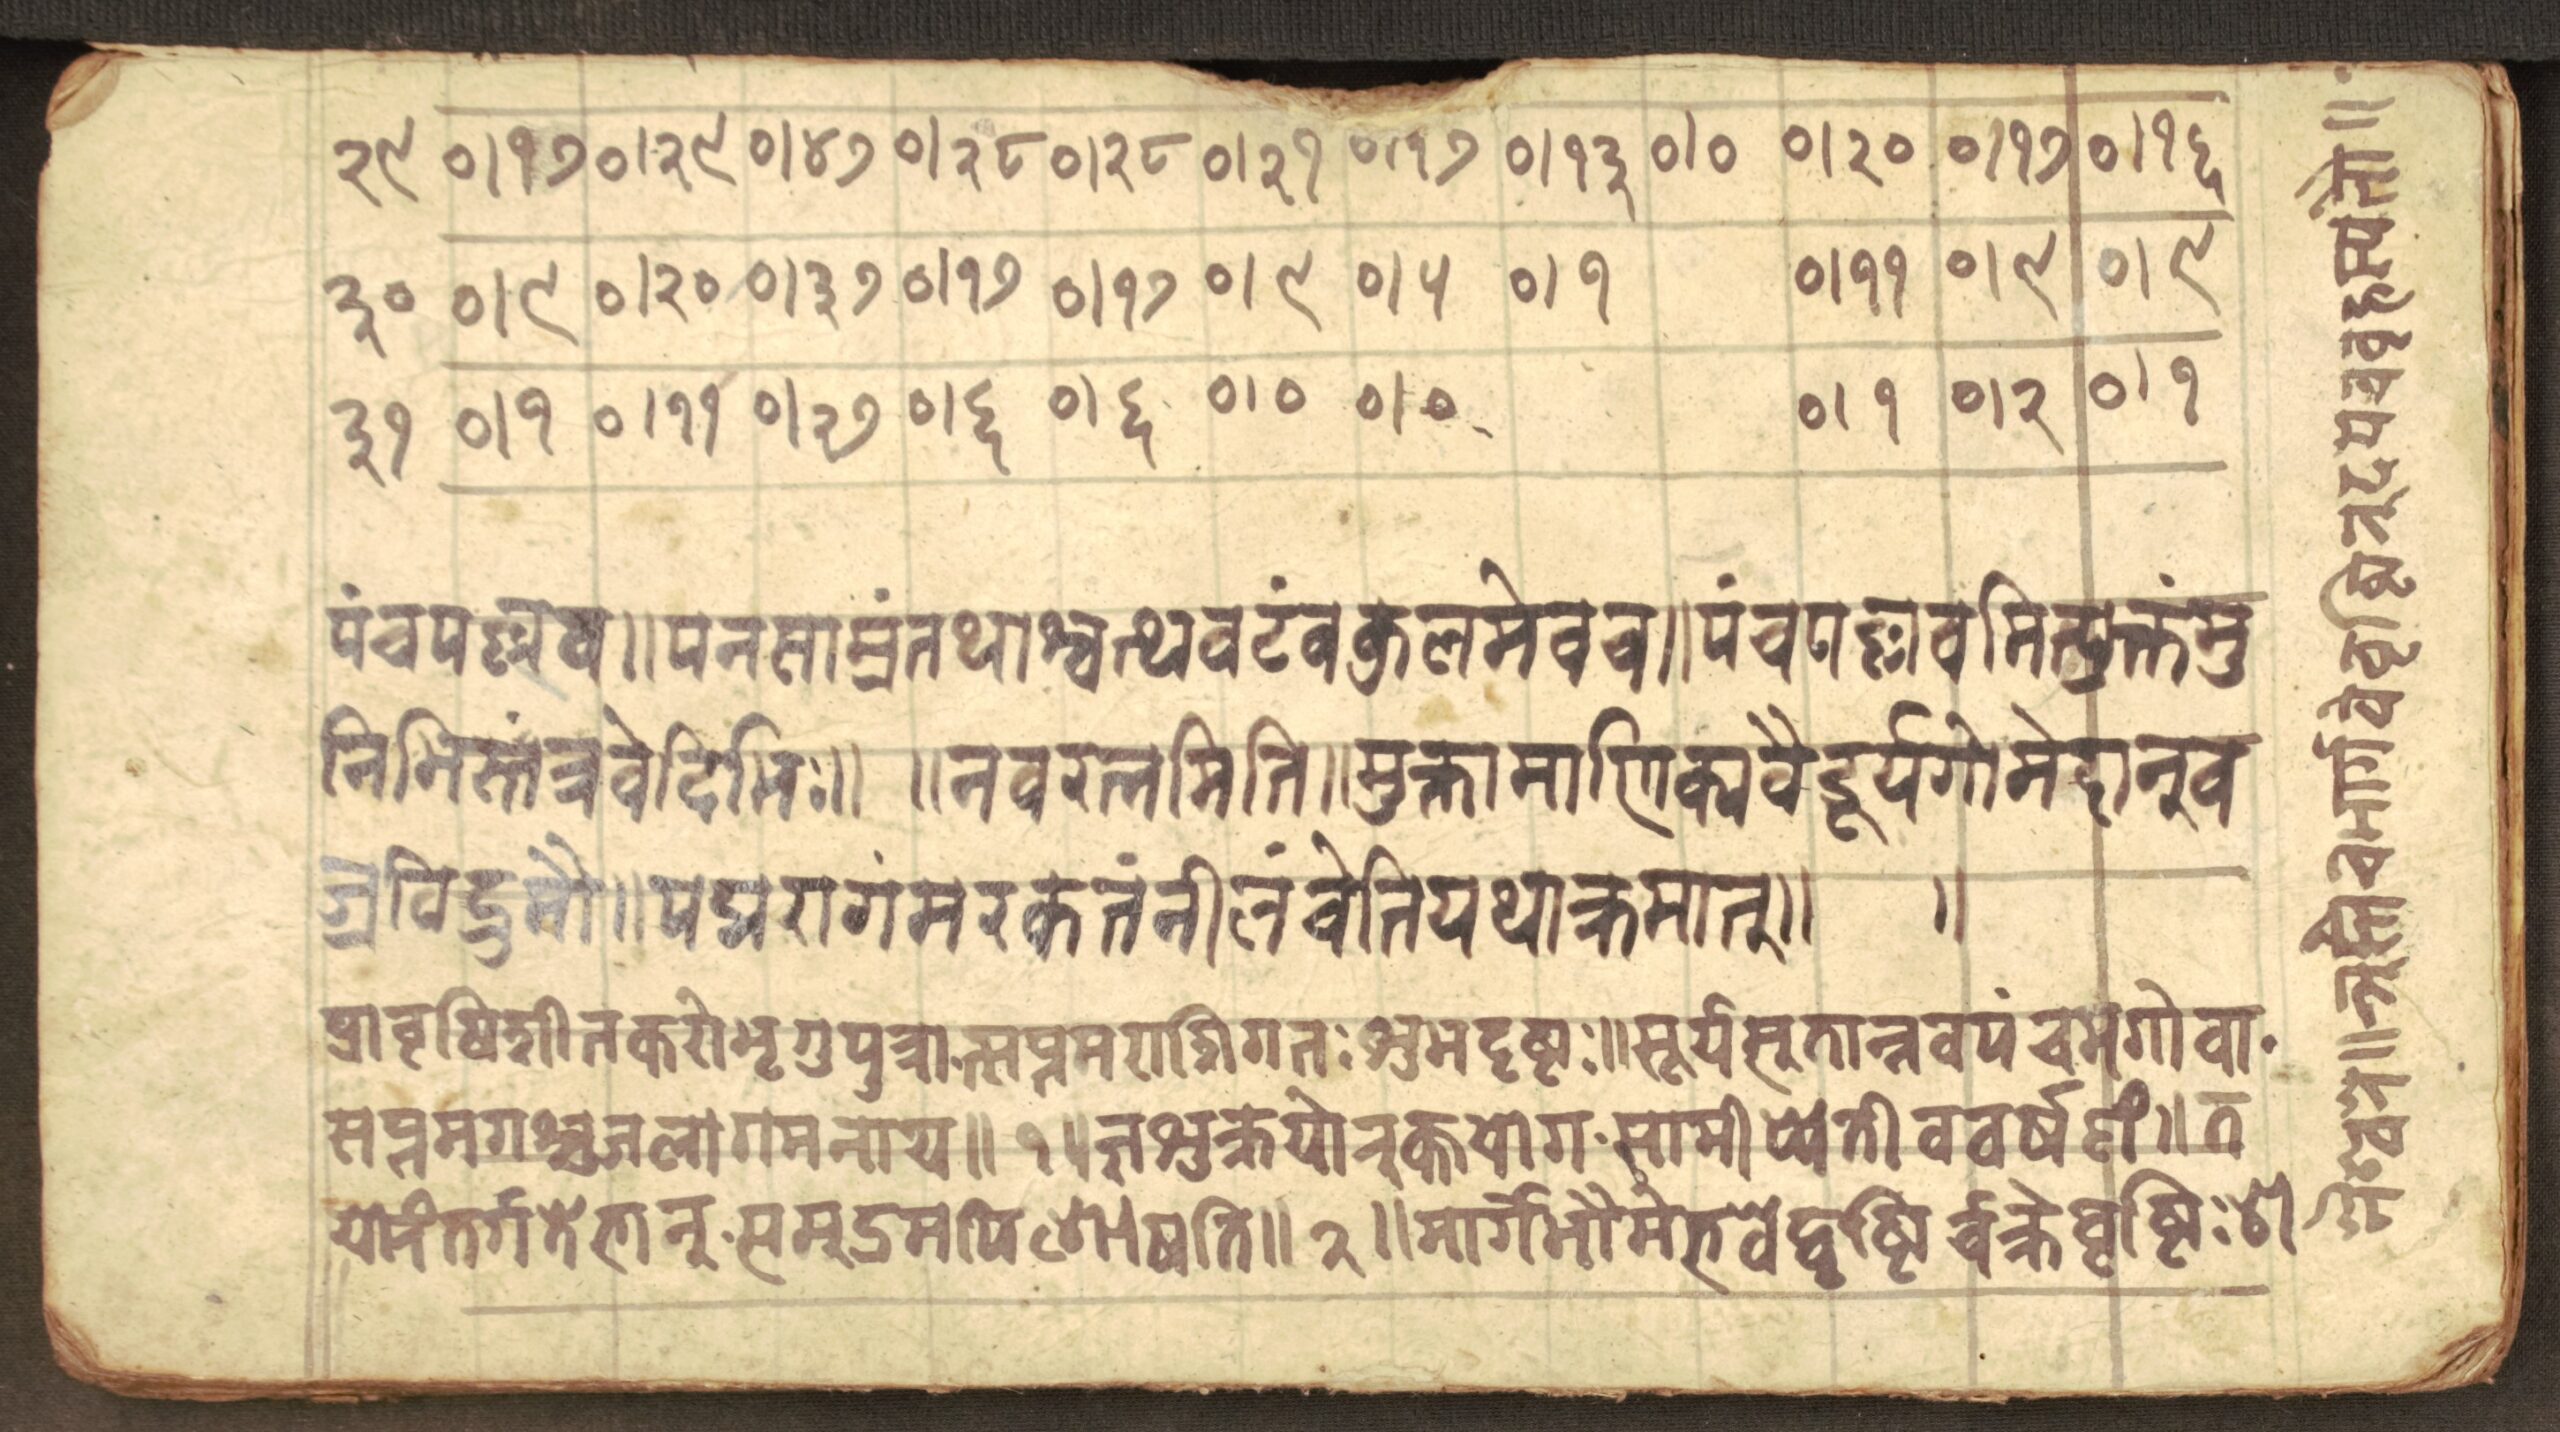 २९ ०।१७ ०।२९ ०।४७ ०।२८ ०।२८ ०।२१ ०।१७ ०।१३ ०।० ०।२० ०।१७ ०।१६
३० ०।९ ०।२० ०।३७ ०।१७ ०।१७ ०।९ ०।५ ०।१ ०।११ ०।९ ०।९
३१ ०।१ ०।११ ०।२७ ०।६ ०।६ ०।० ०।० ०।१ ०।२ ०।१
पंचपल्लव॥पनसाम्रंतथाश्वत्थवटंबकुलमेवच॥पंचपल्लवमित्युक्तंमु
निभिस्तंत्रवेदिभिः॥ ॥नवरत्नमिति॥मुक्तामाणिक्यवैदूर्यगोमेदान्व
ज्रविद्रुमौ॥पद्मरागंमरकतंनीलंचेतियथाक्रमात्॥ ॥
प्रावृषिशीतकरोभृगुपुत्रात्सप्तमराशिगतःशुभदृष्टः॥सूर्यसुतान्नवपंचमगोवा
सप्तमगश्चजलागमनाय॥१॥ज्ञशुक्रयोरुक्तयोगसामीप्येतीववर्षणं॥त
योरंतर्गतेभानुसमुद्रमपिशोषति॥२॥मार्गेभौमे